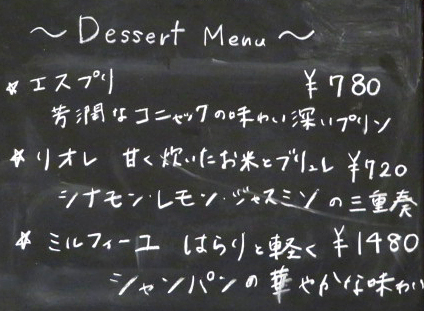 ～ Dessert Menu ～
☆ エスプリ ¥780
芳潤なコニャックの味わい深いプリン
☆ リオレ 甘く炊いたお米とブリュレ ¥720
シナモン・レモン・ジャスミンの三重奏
☆ ミルフィーユ はらりと軽く ¥1480
シャンパンの華やかな味わい